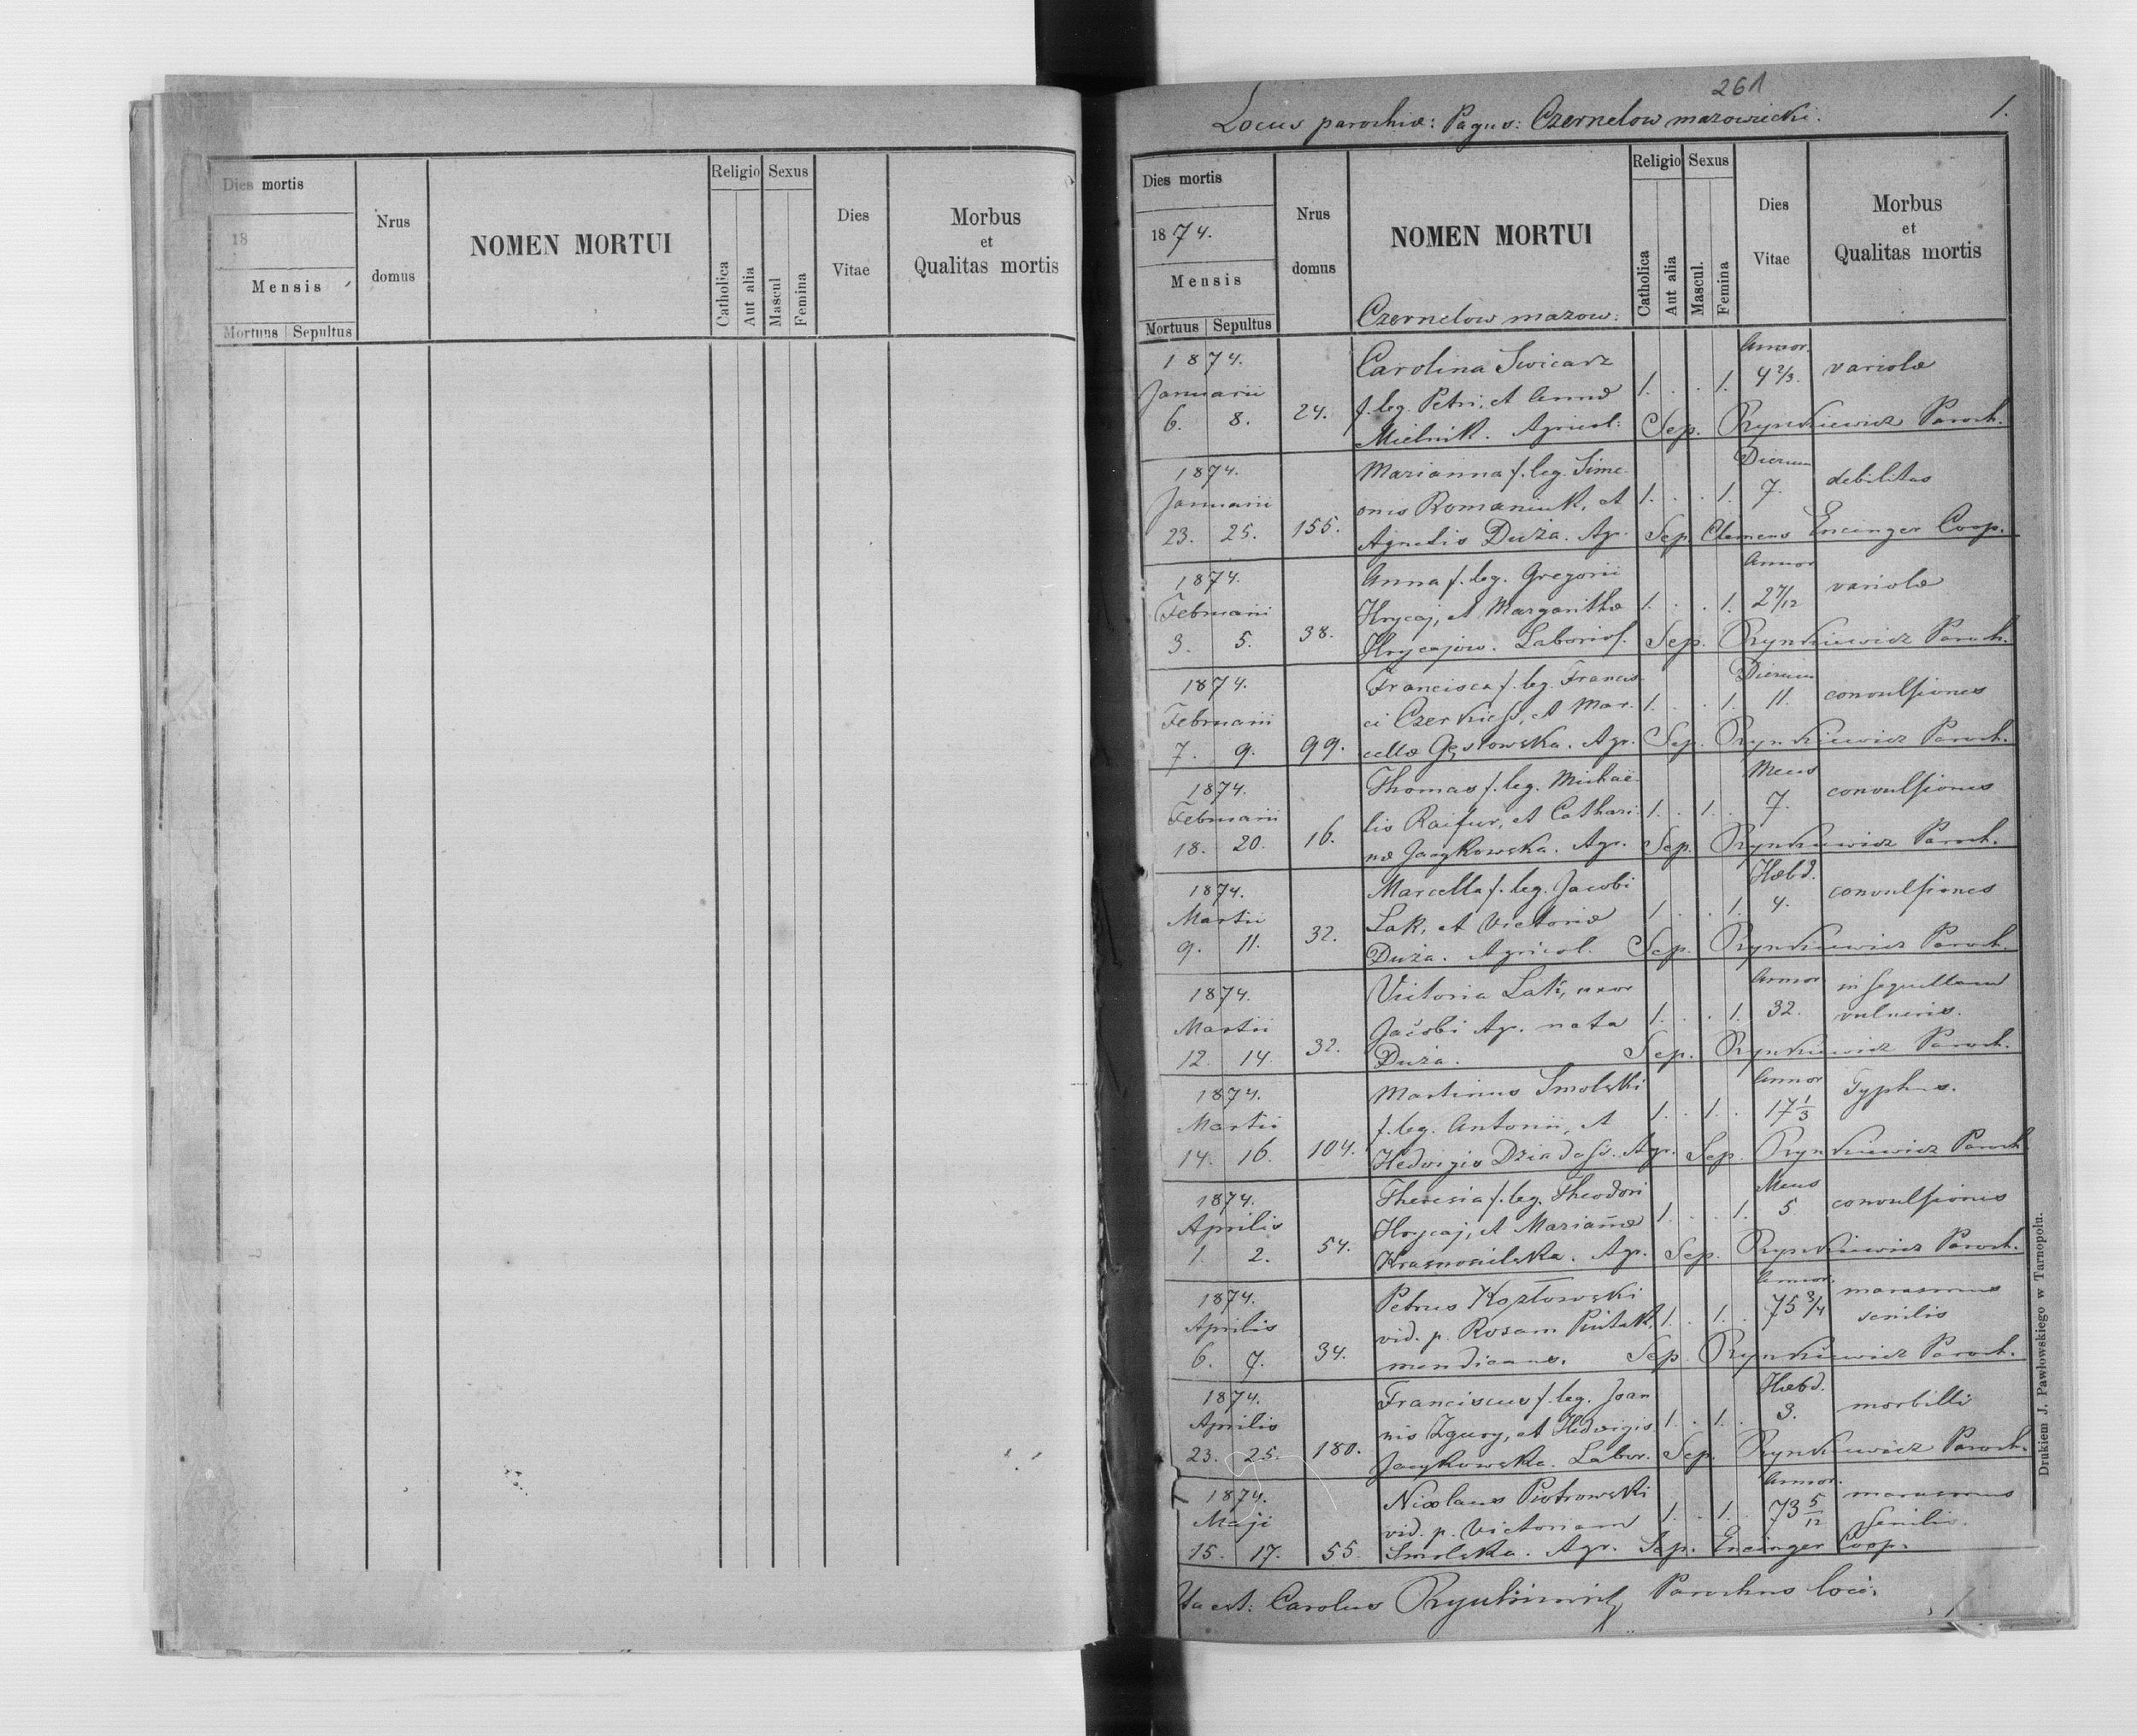 Dies mortis
18
Mensis
Mortuus Sepultus
Nrus
domus
NOMEN MORTUI
Religio Sexus
Catholica
Aut alia
Mascul
Femina
Dies
Vitae
Morbus
et
Qualitas mortis
261
Locus parochiæ: Pagus: Czernelow mazowiecki. 1.
Dies mortis
1874.
Mensis
Mortuus Sepultus
Nrus
domus
NOMEN MORTUI
Czernelow mazow:
Religio Sexus
Catholica
Aut alia
Mascul.
Femina
Dies
Vitae
Morbus
et
Qualitas mortis
1874. Carolina Swicarz Annor.
Januarii f. leg. Petri, et Annæ 1. . . 1. 4 2/3. variolæ
6. 8. 24. Mielnik. Agricol: Sep. Rynkiewicz Paroch.
1874. Marianna f. leg. Sime Dierum
Januarii onis Romaniuk, et 1. . . 1. 7. debilitas
23. 25. 155. Agnetis Duża. Agr. Sep. Clemens Encinger Coop.
1874. Anna f. leg. Gregorii Annor
Februarii Hrycaj, et Margarithæ 1. . . 1. variolæ
3. 5. 38. Hrycajow. Laborios. Sep. Rynkiewicz Paroch.
1874. Francisca f. leg. Francis Dierum
Februarii ci Czerkieſs, et Mar- 1. . . 1. 11. convulſiones
7. 9. 99. cellæ Gęstowska. Agr. Sep. Rynkiewicz Paroch.
1874. Thomas f. leg. Michaë- Mens
Februarii lis Raifur, et Cathari- 1. . 1. . 7. convulſiones
18. 20. 16. næ Jacykowska. Agr. Sep. Rynkiewicz Paroch.
1874. Marcella f. leg. Jacobi Hebd.
Martii Lak, et Victoriæ 1. . . 1. 4. convulſiones
9. 11. 32. Duża. Agricol. Sep. Rynkiewicz Paroch.
1874. Victoria Lak, uxor Annor in sequellam
Martii Jacobi Agr. nata 1. . . 1. 32. vulneris.
12. 14. 32. Duża. Sep. Rynkiewicz Paroch.
1874. Martinus Smolski Annor
Martii f. leg. Antonii, et 1. . 1. . 17 1/3 Typhus.
14. 16. 104. Hedvigis Dziadaſs. Agr. Sep. Rynkiewicz Paroch
1874. Theresia f. leg. Theodori Mens
Aprilis Hrycaj, et Mariañæ 1. . . 1. 5. convulſiones
1. 2. 54. Krasnosielska. Agr. Sep. Rynkiewicz Paroch.
1874. Petrus Kozłowski Annor. marasmus
Aprilis vid. p. Rosam Piętak, 1. . 1. . 75 3/4 senilis
6. 7. 34. mendicans. Sep. Rynkiewicz Paroch.
1874. Franciscus f. leg. Joan Hebd.
Aprilis nis Zgury, et Hedvigis 1. . 1. . 3. morbilli
23. 25. 180. Jacykowska. Labor. Sep. Rynkiewicz Paroch.
1874. Nicolaus Piotrowski Annor. marasmus
Maji vid. p. Victoriam 1. . 1. . 73 5/12 senilis.
15. 17. 55. Smolska. Agr. Sep. Encinger Coop.
Ita est: Carolus Rynkiewicz Parochus loci.
Drukiem J. Pawłowskiego w Tarnopolu.